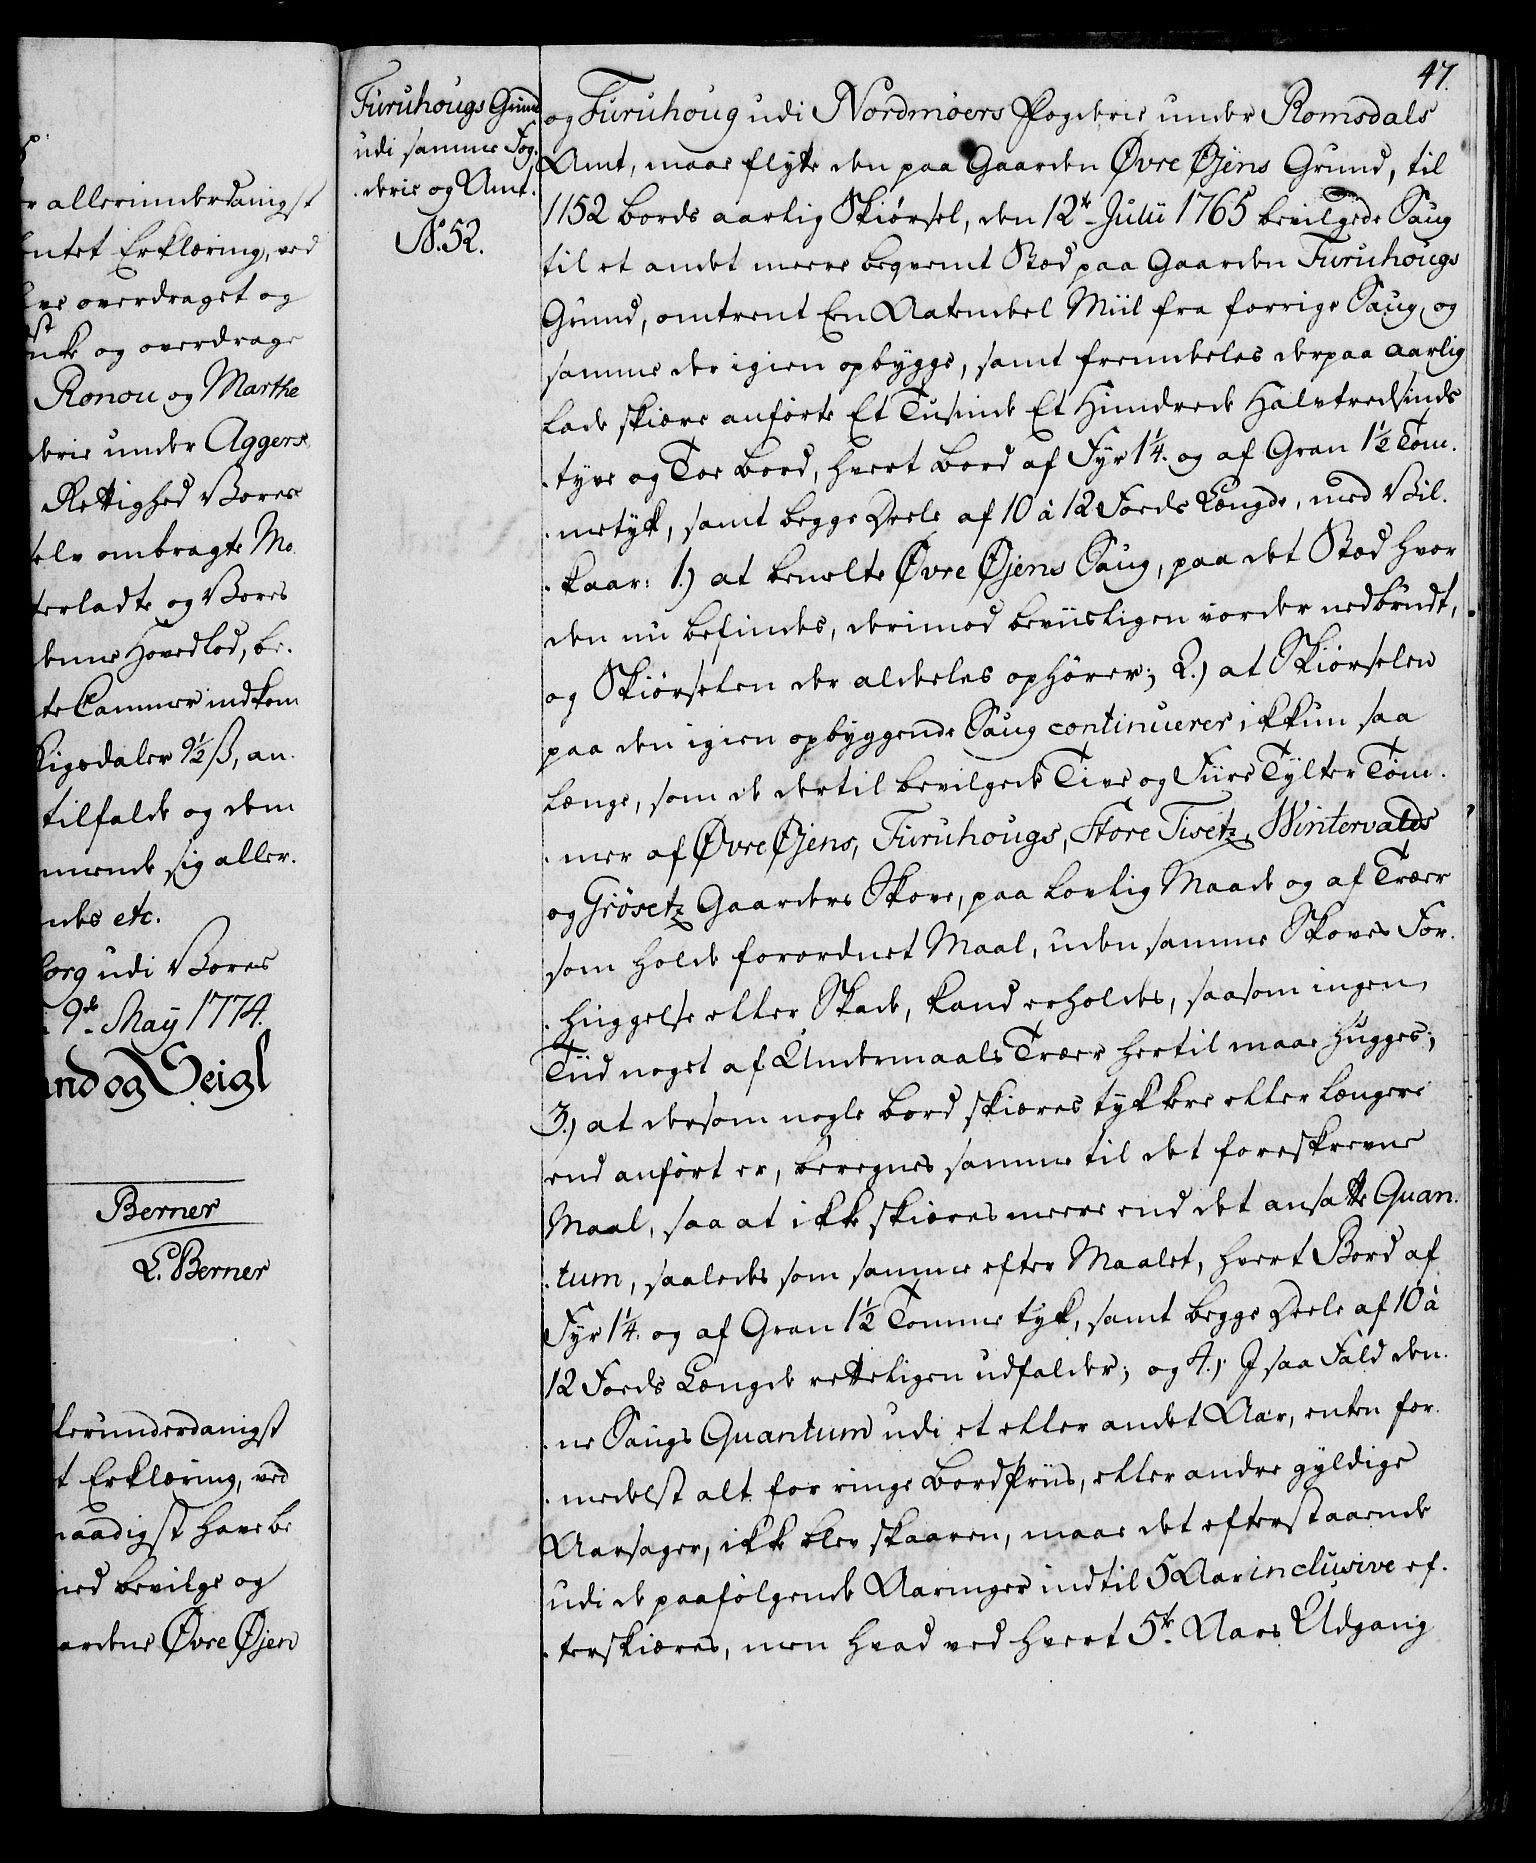 47.
r allerunderdanigst
ntet Erklæring, ved
ve overdraget og
nke og overdrage
Ronou og Marthe
derie under Aggers
Rettighed Vores
selv ombragte Mo
terladte og Vores
denne Hovedlod, be.
te Cammer indkom
Rigsdaler 9½ ß, an.
tilfalde og dem
mende sig aller.
ndes etc.
borg udi Vores
9de May 1774.
and og Seigl
Berner
L. Berner
lerunderdanigst
t Erklæring, ved
naadigst have be
ved bevilge og
aardene Øvre Øjen
Furuhougs Grund
udi samme Fog.
derie og Amt.
No. 52.
og Furuhoug udi Nordmøers Fogderie under Romsdals
Amt, maae flytte den paa Gaarden Øvre Øjens Grund, til
1152 bords aarlig Skiørsel, den 12te Julii 1765 bevilgede Saug
til et andet meere beqvemt Stæd paa Gaarden Furuhougs
Grund, omtrent Een Aatendel Miil fra forrige Saug, og
samme der igien opbygge, samt fremdeles derpaa aarlig
lade skiære anførte Et Tusinde Et Hundrede Halvtredsinds
tyve og Toe bord, hvert bord af Fyr 1¼. og af Gran 1½ Tom.
metyk, samt begge Deele af 10 à 12 Foeds Længde, med Vil.
kaar: 1.) at bemelte Øvre Øjens Saug, paa det Stæd hvor
den nu befindes, derimod beviisligen vorder nedbrudt,
og Skiørselen der aldeeles ophører; 2.) at Skiørselen
paa den igien opbyggende Saug continuerer ikkun saa
længe, som de dertil bevilgede Tive og Fiire Tylter Tøm.
mer af Øvre Øjens, Furuhougs, Store Tisetz, Wintervalds
og Grøsetz Gaarders Skove, paa lovlig Maade og af Træer
som holde forordnet Maal, uden samme Skoves For.
huggelse eller Skade, kand erholdes, saasom ingen
Tiid noget af Undermaals Træer hertil maae hugges;
3.) at dersom nogle bord skiæres tykkere eller længere
end anført er, beregnes samme til det foreskrevne
Maal, saa at ikke skiæres meere end det ansatte Quan.
tum, saaledes som samme efter Maalet, hvert Bord af
Fyr 1¼. og af Gran 1½ Tomme tyk, samt begge Deele af 10 à
12 Foeds Længde retteligen udfalder; og 4.) I saa Fald den.
ne Saugs Quantum udi et eller andet Aar, enten for.
medelst alt for ringe bord Priis, eller andre gyldige
Aarsager, ikke blev skaaren, maae det efterstaaende
udi de paafølgende Aaringer indtil 5 Aar inclusive ef.
terskiæres, men hvad ved hvert 5te Aars Udgang